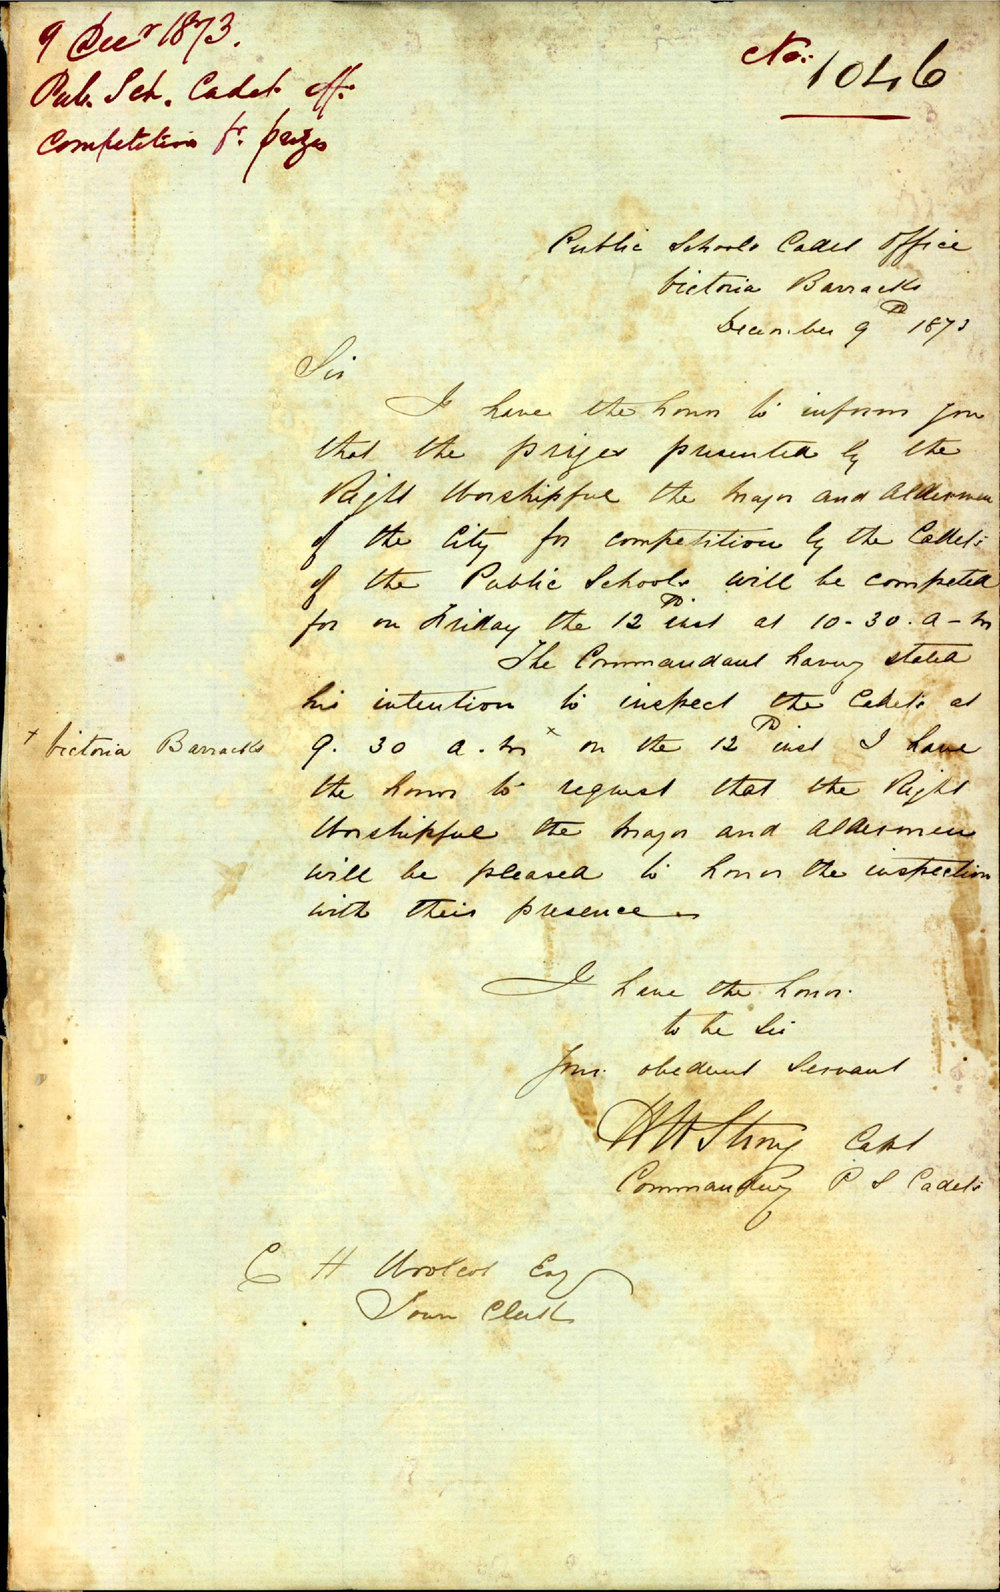 9 Decr 1873.
Pub. Sch. Cadet off.
Competition fr. prizes
No: 1046
Public Schools Cadet Office
Victoria Barracks
December 9th 1873
Sir
I have the honor to inform you
that the prizes presented by the
Right Worshipful the Mayor and Aldermen
of the City for competition by the Cadets
of the Public Schools will be competed
for on Friday the 12th inst at 10-30. a-m
The Commandant having stated
his intention to inspect the Cadets at
x Victoria Barracks
9. 30 a.m x on the 12th inst I have
the honor to request that the Right
Worshipful the Mayor and Aldermen
will be pleased to honor the inspection
with their presence
I have the honor
to be Sir
Your obedient Servant
Strong Capt
Commanding P S Cadets
C H Woolcot Esq
Town Clerk